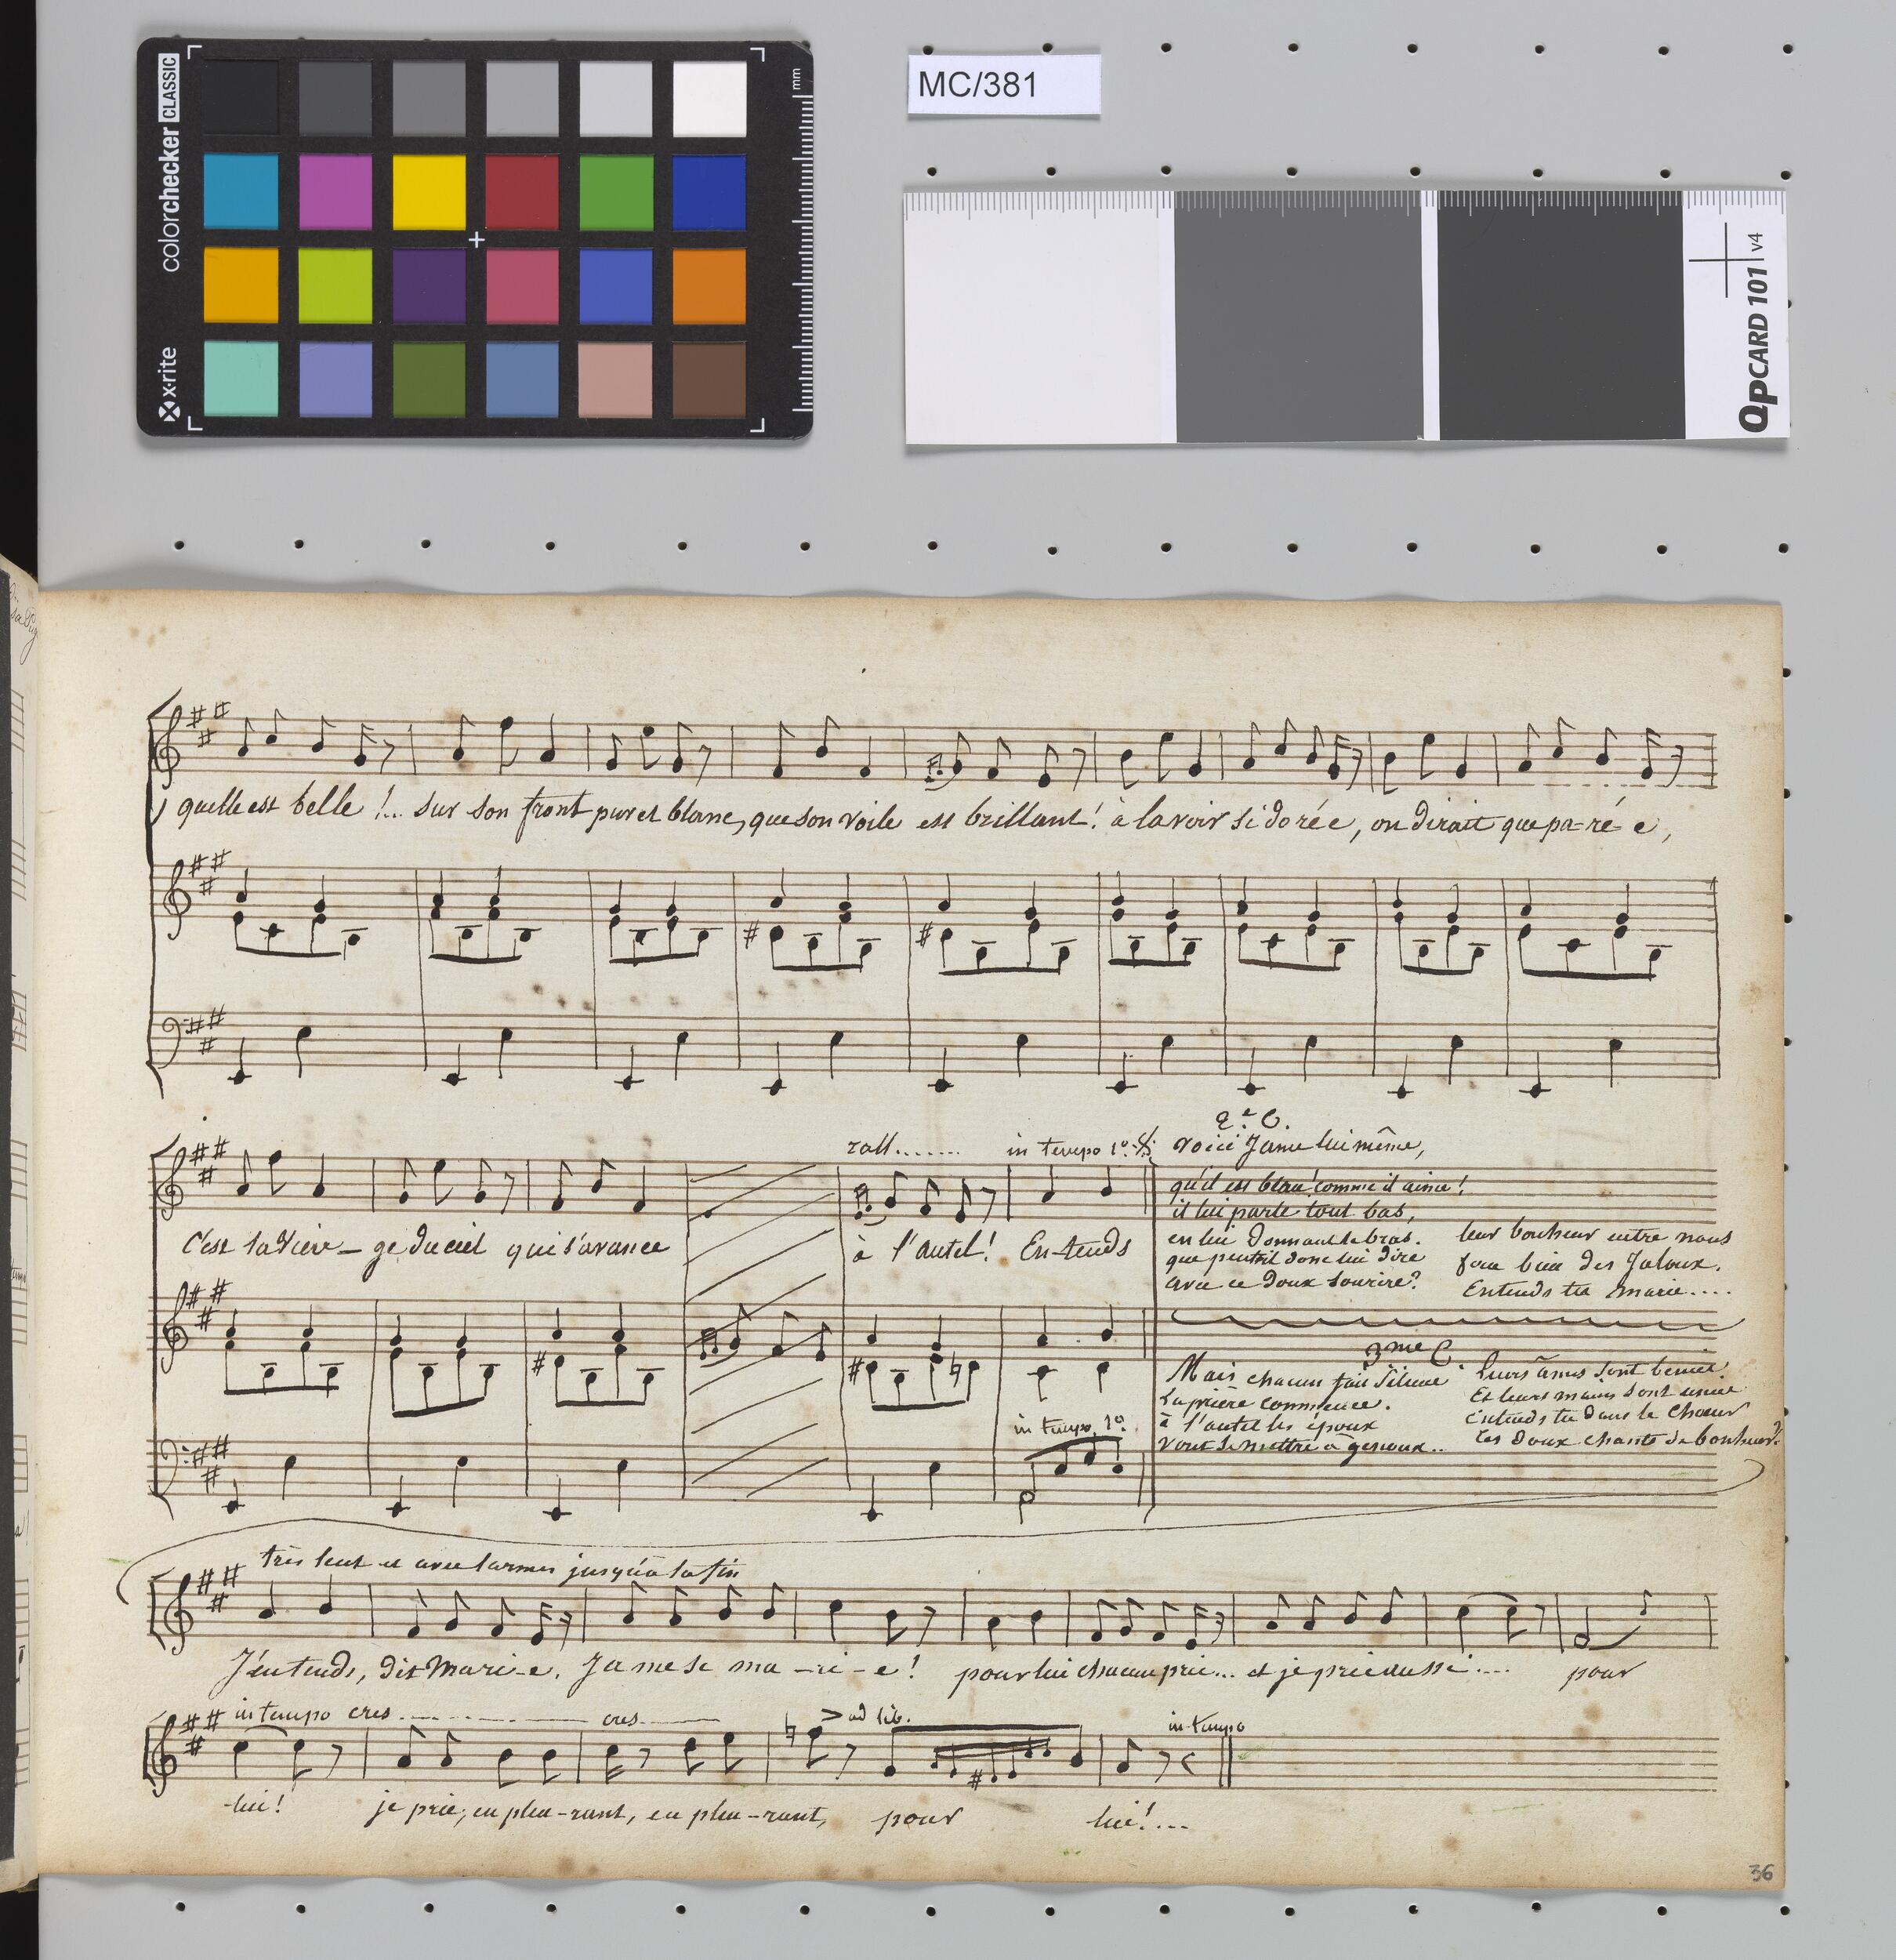 colorchecker CLASSIC
x-rite
mm
MC/381
QPCARD 101 v4
quelle est belle !... sur son front pur et blanc, que son voile est brillant ! à la voir si dorée, on dirait que pa-ré-e,
rall....... in tempo 1º.
c'est la vier-ge du ciel qui s'avance à l'autel ! En-tends
in tempo 1º.
2.e C.
voici Jame lui même,
qu'il est beau ! comme il aime !
il lui parle tout bas,
en lui donnant le bras.
que peut-il donc lui dire
avec ce doux sourire ?
leur bonheur entre nous
fera bien des Jaloux.
Entends tu Marie....
3me C.
Mais chacun fait silence
La prière commence.
à l'autel les époux
vont se mettre à genoux..
leurs âmes sont
Et leurs mains sont
entends tu dans le Choeur
les doux chants de bonheur ?
très lent et avec larmes jusqu'à la fin
J'entends, dit Mari-e, Ja me se ma-ri-e ! pour lui chacun prie... et je prie aussi.... pour
in tempo cres. cres. > ad lib. in tempo
lui ! je prie, en pleu-rant, en pleu-rant, pour lui !...
36